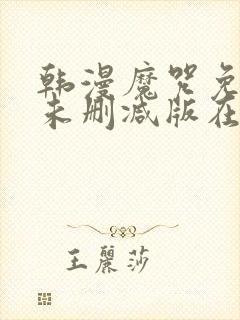 韩漫魔咒免
未删减版在
王麗莎